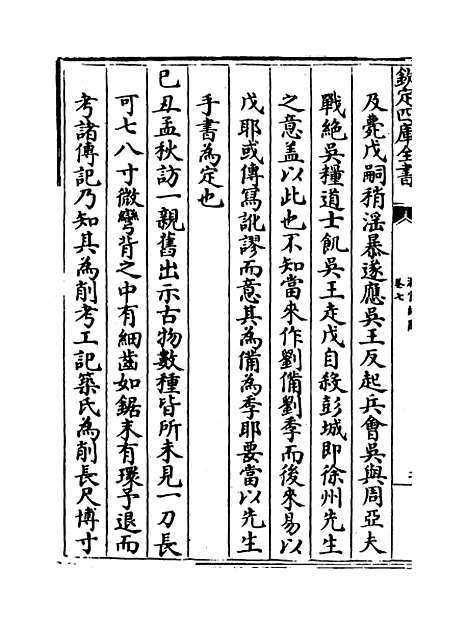 欽定四庫全書
卷七
及薨戊嗣稍淫暴遂應吳王反起兵會吳與周亞夫
戰絕吳糧道士飢吳王走戊自殺彭城即徐州先生
之意蓋以此也不知當來作劉備劉季而後來易以
戊耶或傳寫訛謬而意其為備為季耶要當以先生
手書為定也
巳丑孟秋訪一親舊出示古物數種皆所未見一刀長
可七八寸微彎背之中有細齒如鋸末有環予退而
考諸傳記乃知其為削考工記築氏為削長尺博寸